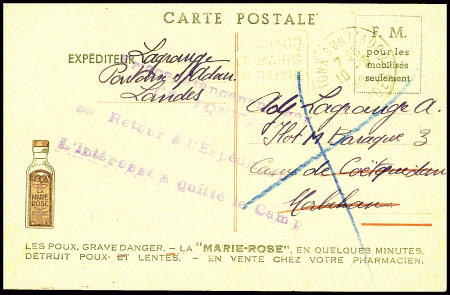 CARTE POSTALE
F. M.
pour les
mobilisés
seulement
EXPÉDITEUR Lagrange
Pontonx s/ Adour
Landes
Retour à l'Expéditeur
L'Intéressé a quitté le Camp
Adj Lagrange A.
Ilot M Baraque 3
Camp de Coëtquidan
Morbihan
LA
MARIE
ROSE
LES POUX, GRAVE DANGER. - LA "MARIE-ROSE", EN QUELQUES MINUTES,
DÉTRUIT POUX ET LENTES. - EN VENTE CHEZ VOTRE PHARMACIEN.